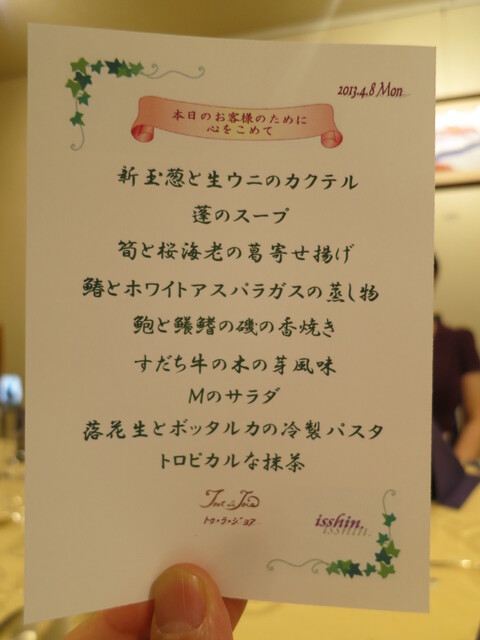 2013.4.8 Mon
本日のお客様のために
心をこめて
新玉葱と生ウニのカクテル
蓬のスープ
筍と桜海老の葛寄せ揚げ
鰆とホワイトアスパラガスの蒸し物
鮑と鱶鰭の磯の香焼き
すだち牛の木の芽風味
Mのサラダ
落花生とボッタルカの冷製パスタ
トロピカルな抹茶
Tout La Joie
トゥ・ラ・ジョア
isshin.